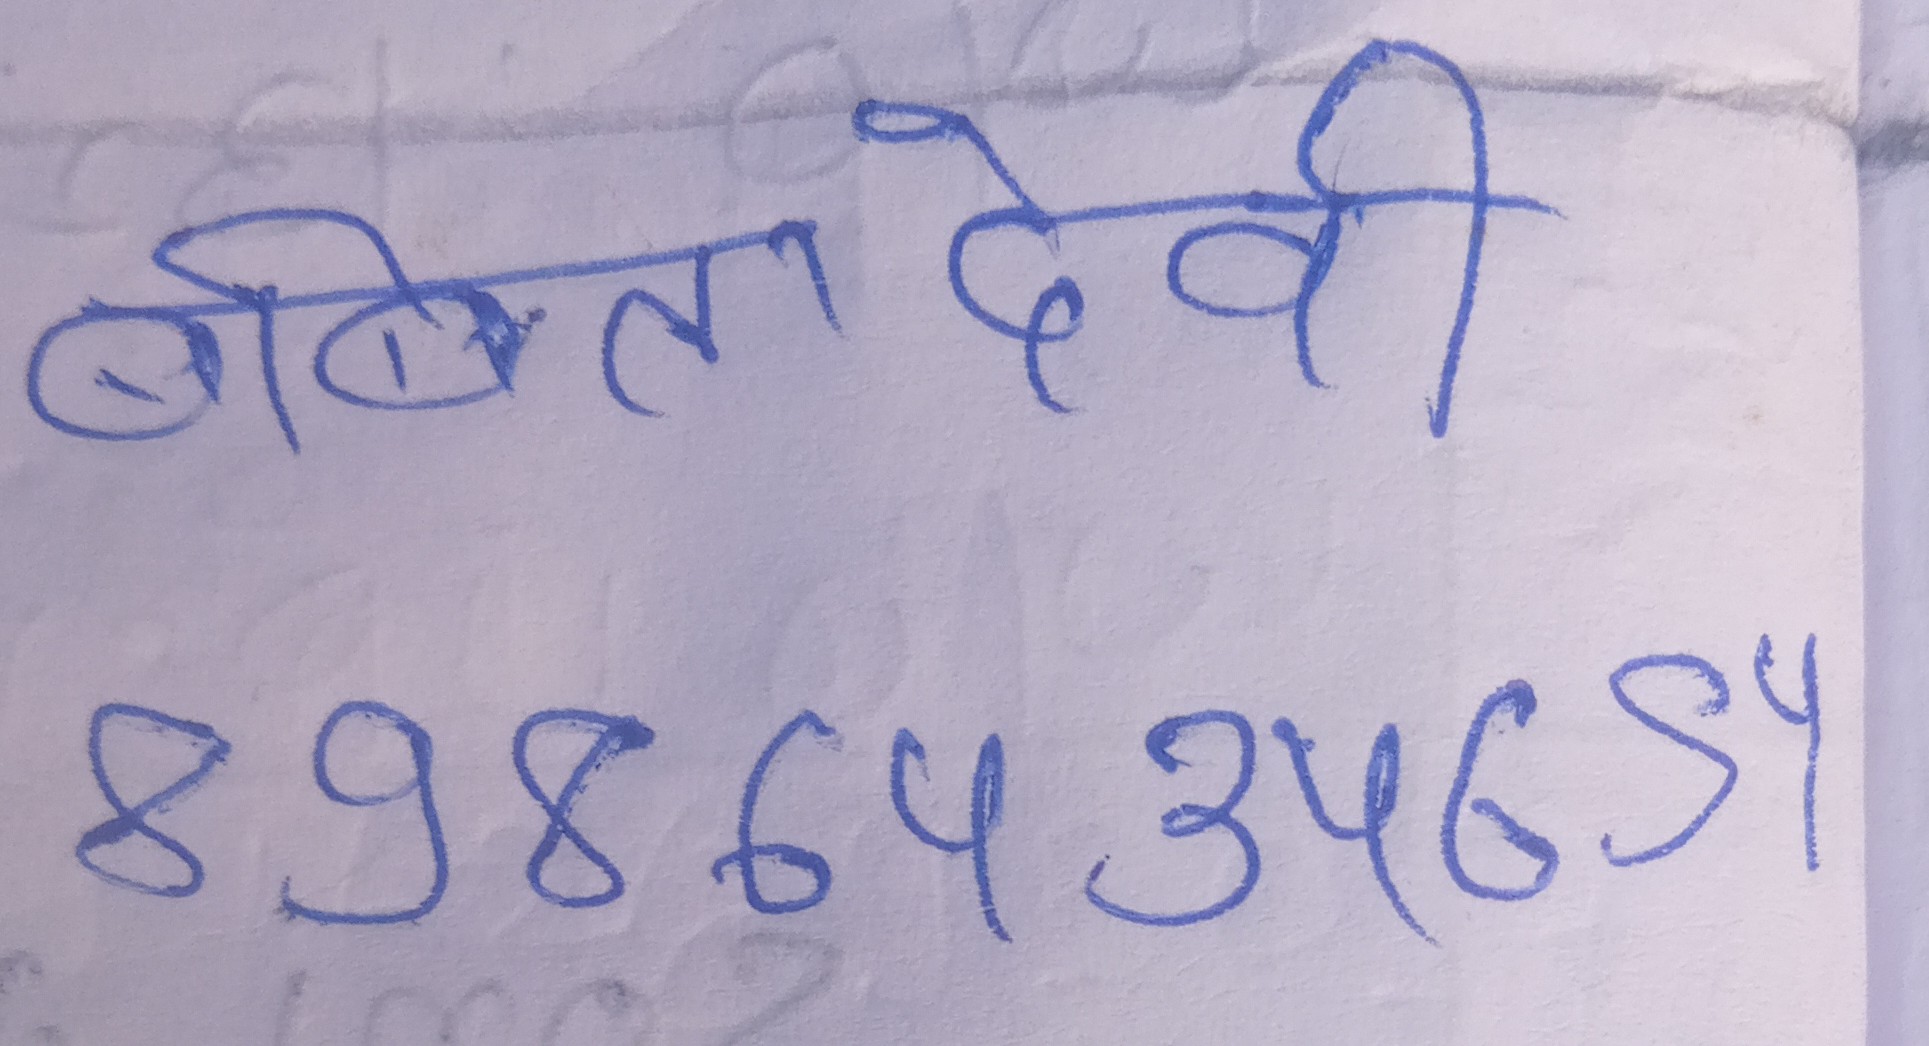 बबिता देवी
8986434654